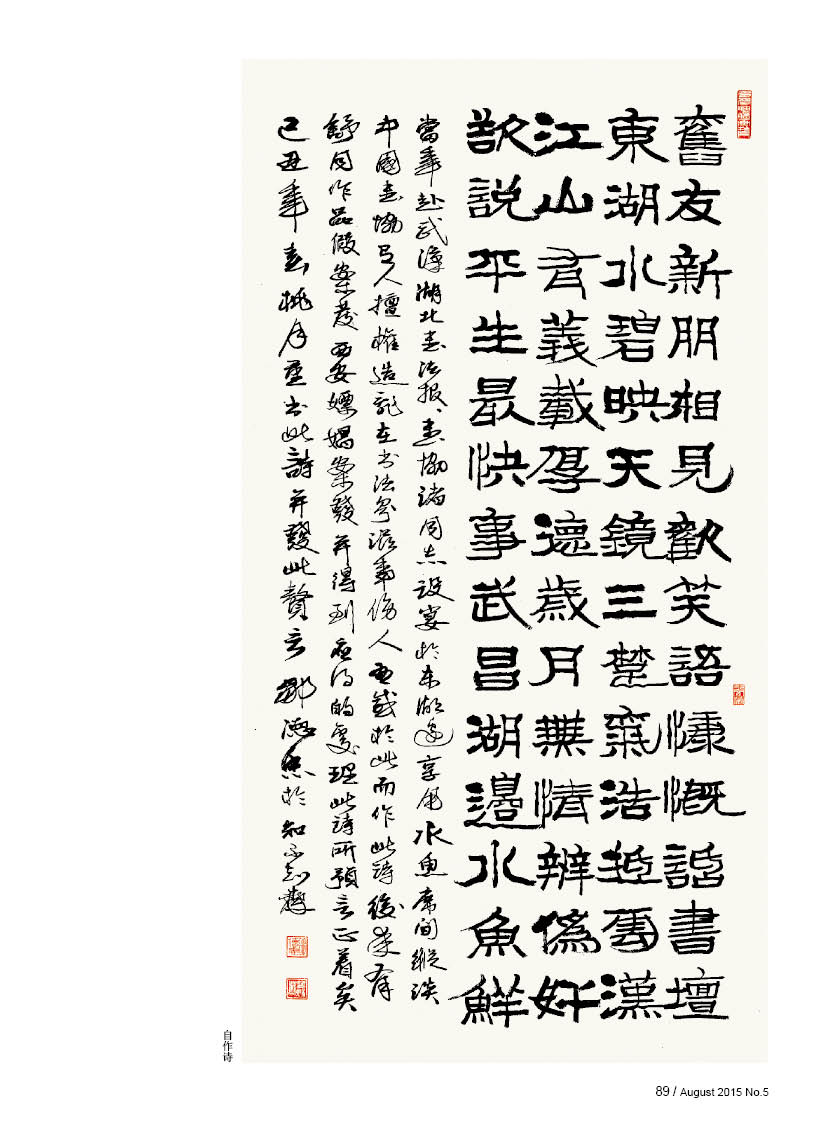 舊友新朋相見歡笑語慷慨話書壇
東湖水碧映天鏡三楚氣浩抵雲漢
江山有義載厚德歲月無情辨偽奸
欲說平生最快事武昌湖邊水魚鮮
當年赴武漢湖北書法報、書協諸同志設宴於东湖边享用水魚席间縱談
中國書協有人擅權造在书法界滋事傷人有感於此而作此詩後果有
舒同作品假案發西安嫖娼案發并得到應得的處理此詩所預言正着矣
己丑年春桃月重书此詩并發此贅言鄒德忠於知不齋
自作诗
89 / August 2015 No.5